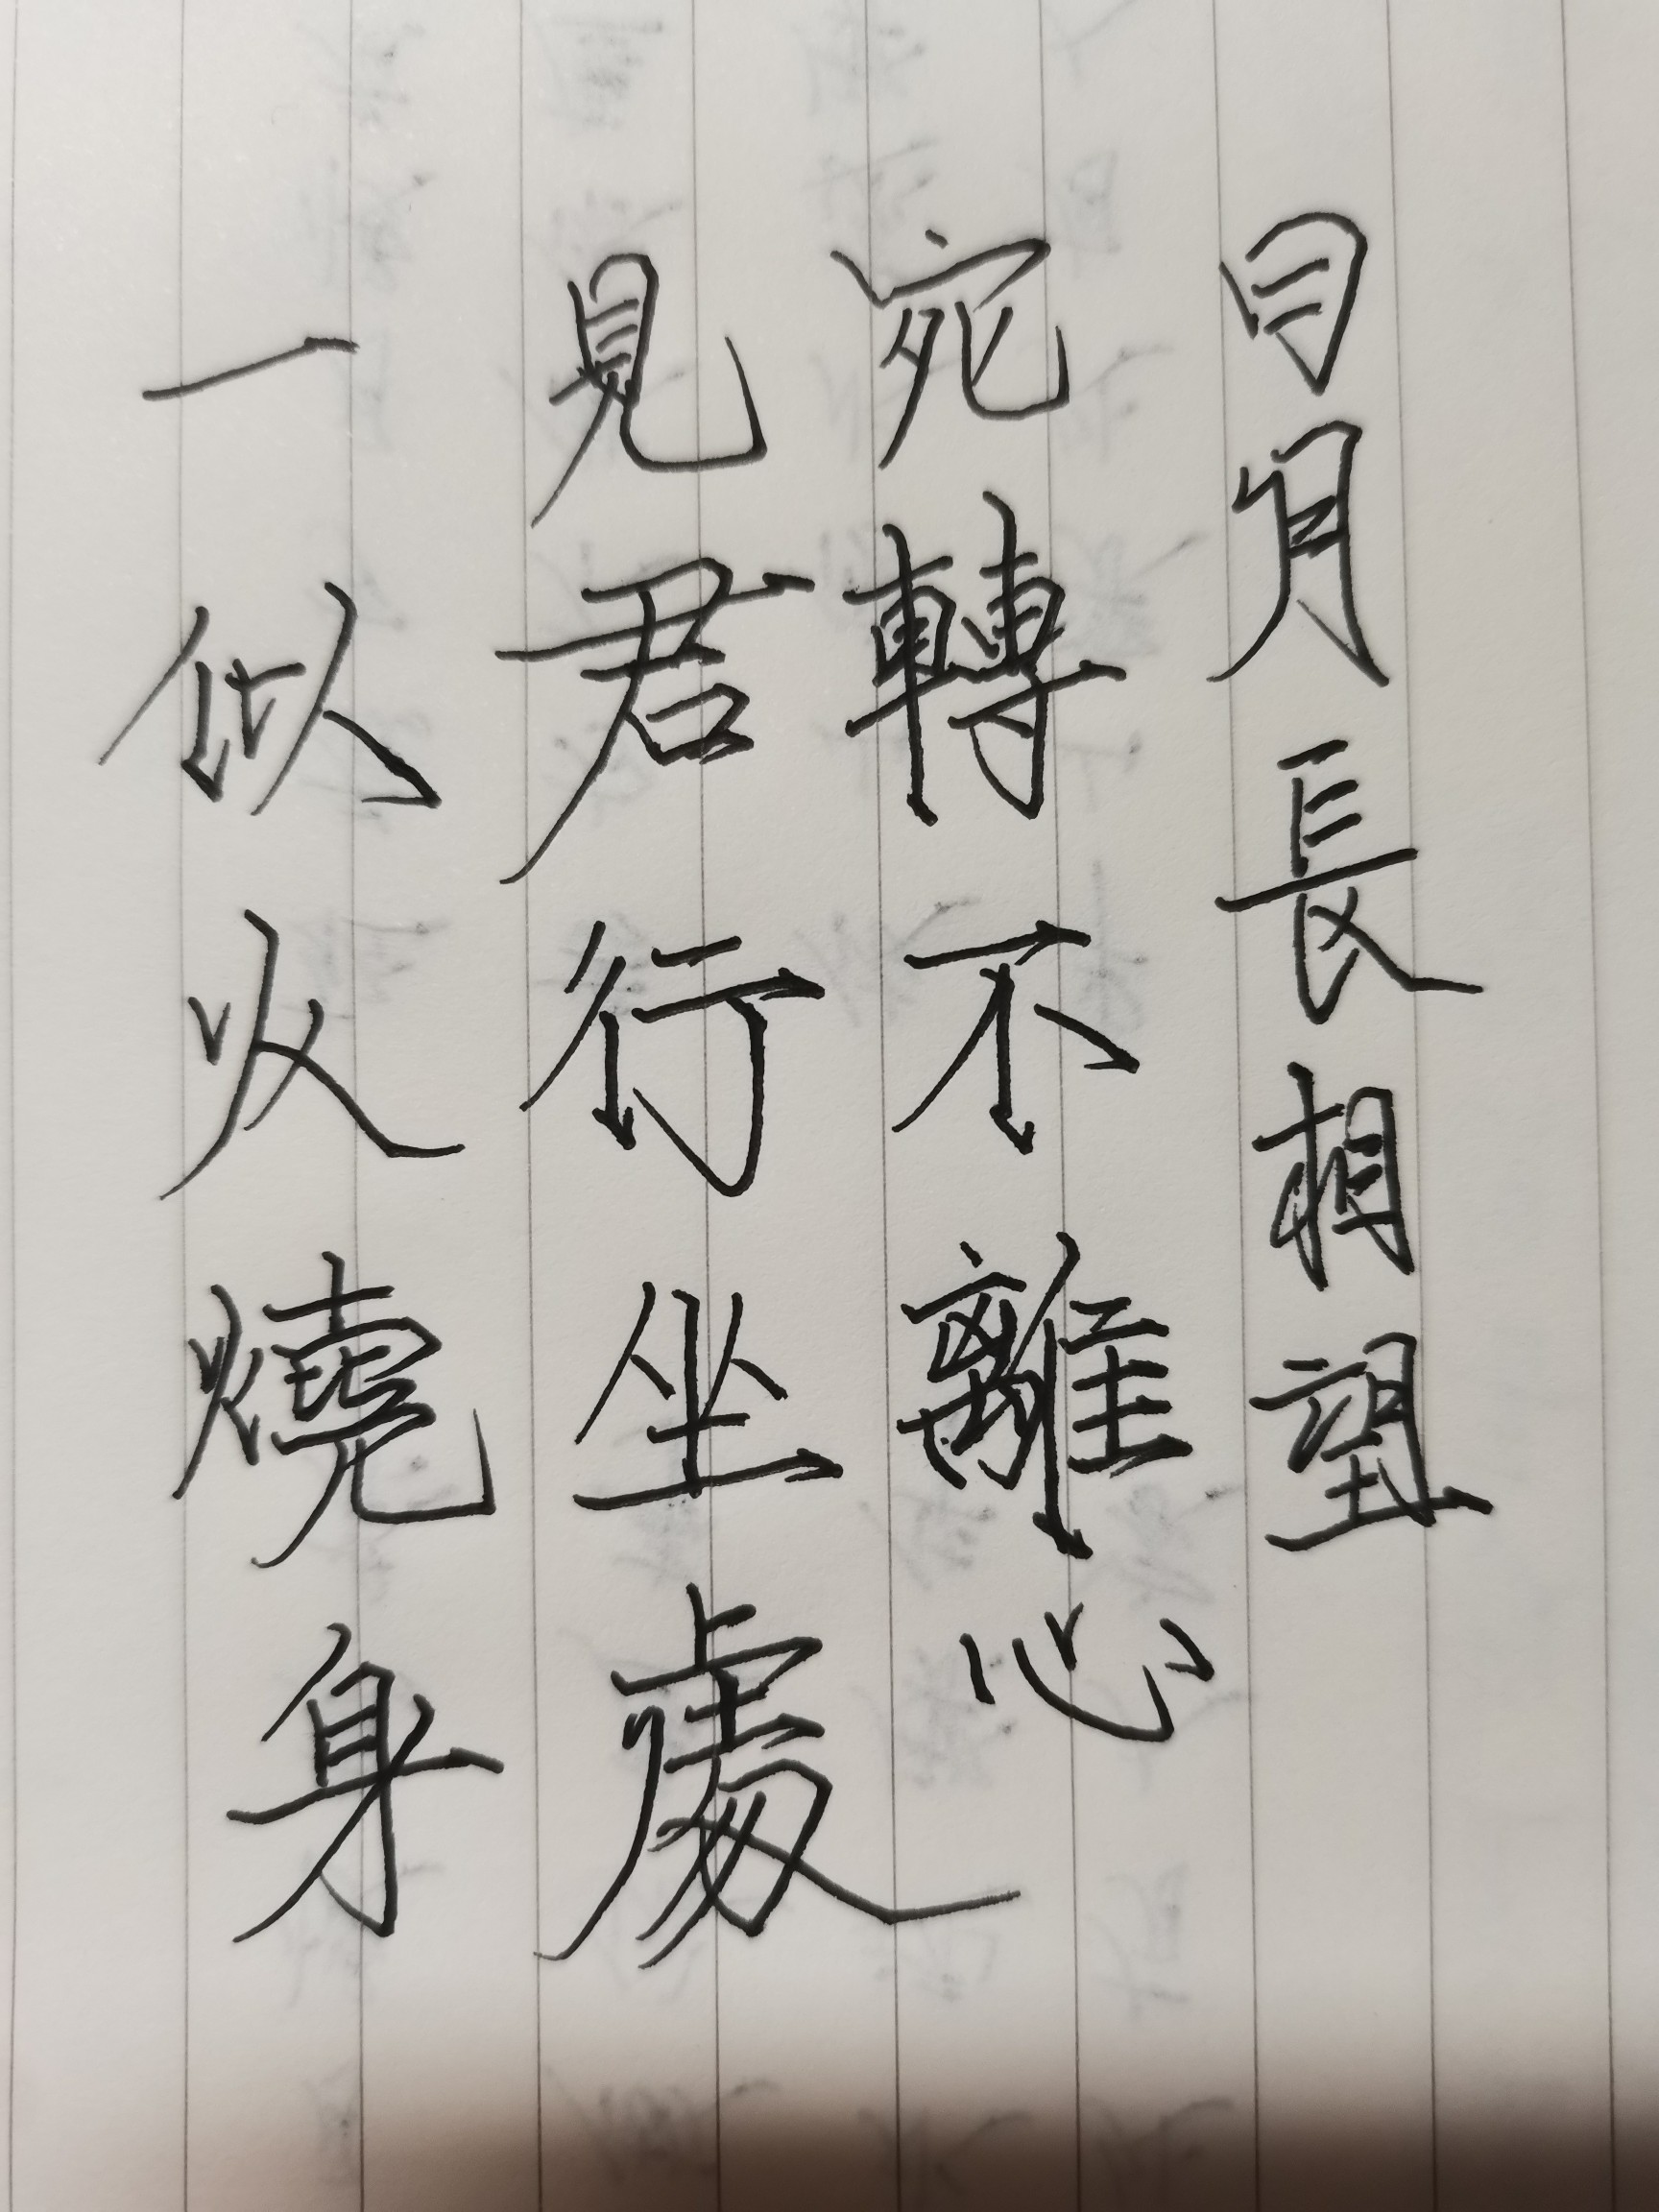 日月長相望
宛轉不離心
見君行坐處
一似火燒身